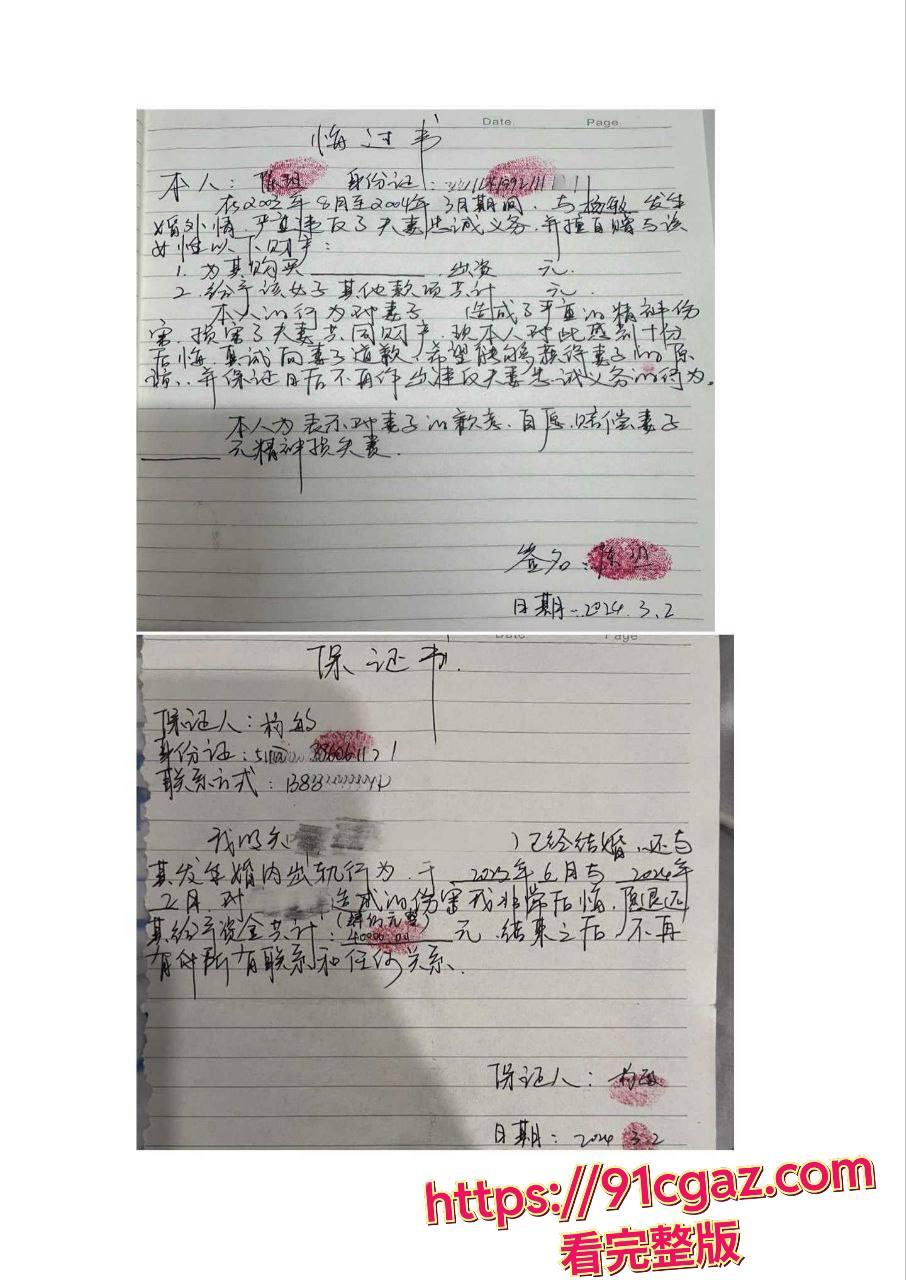 Date. Page.
悔过书
本人: 陈 身份证:
在2003年8月至2004年3月期间,与杨敏发生
婚外情,严重违反了夫妻忠诚义务,并擅自赠与该
女性以下财产:
1. 为其购买 出资 元.
2. 给予该女子其他款项共计 元.
本人的行为对妻子 造成了严重的精神伤
害,损害了夫妻共同财产,现本人对此感到十份
后悔,真诚向妻子道歉,希望能够获得妻子的原
谅,并保证日后不再作出违反夫妻忠诚义务的行为。
本人为表示对妻子的歉意,自愿赔偿妻子
元精神损失费.
签名:陈
日期:2024.3.2
Date Page
保证书.
保证人:杨敏
身份证:
联系方式:
我明知 已经结婚,还与
其发生婚内出轨行为,于 年6月与2024年
2月对 造成的伤害我非常后悔,愿退还
其给予资金共计: 40000.00 元,结束之后,不再
有 所有联系和任何关系.
保证人:杨
日期:2024 3.2
https://91cgaz.com
看完整版